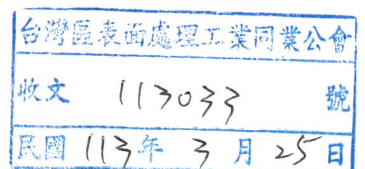 台灣區表面處理工業同業公會
收文 113033 號
民國 113 年 3 月 25 日